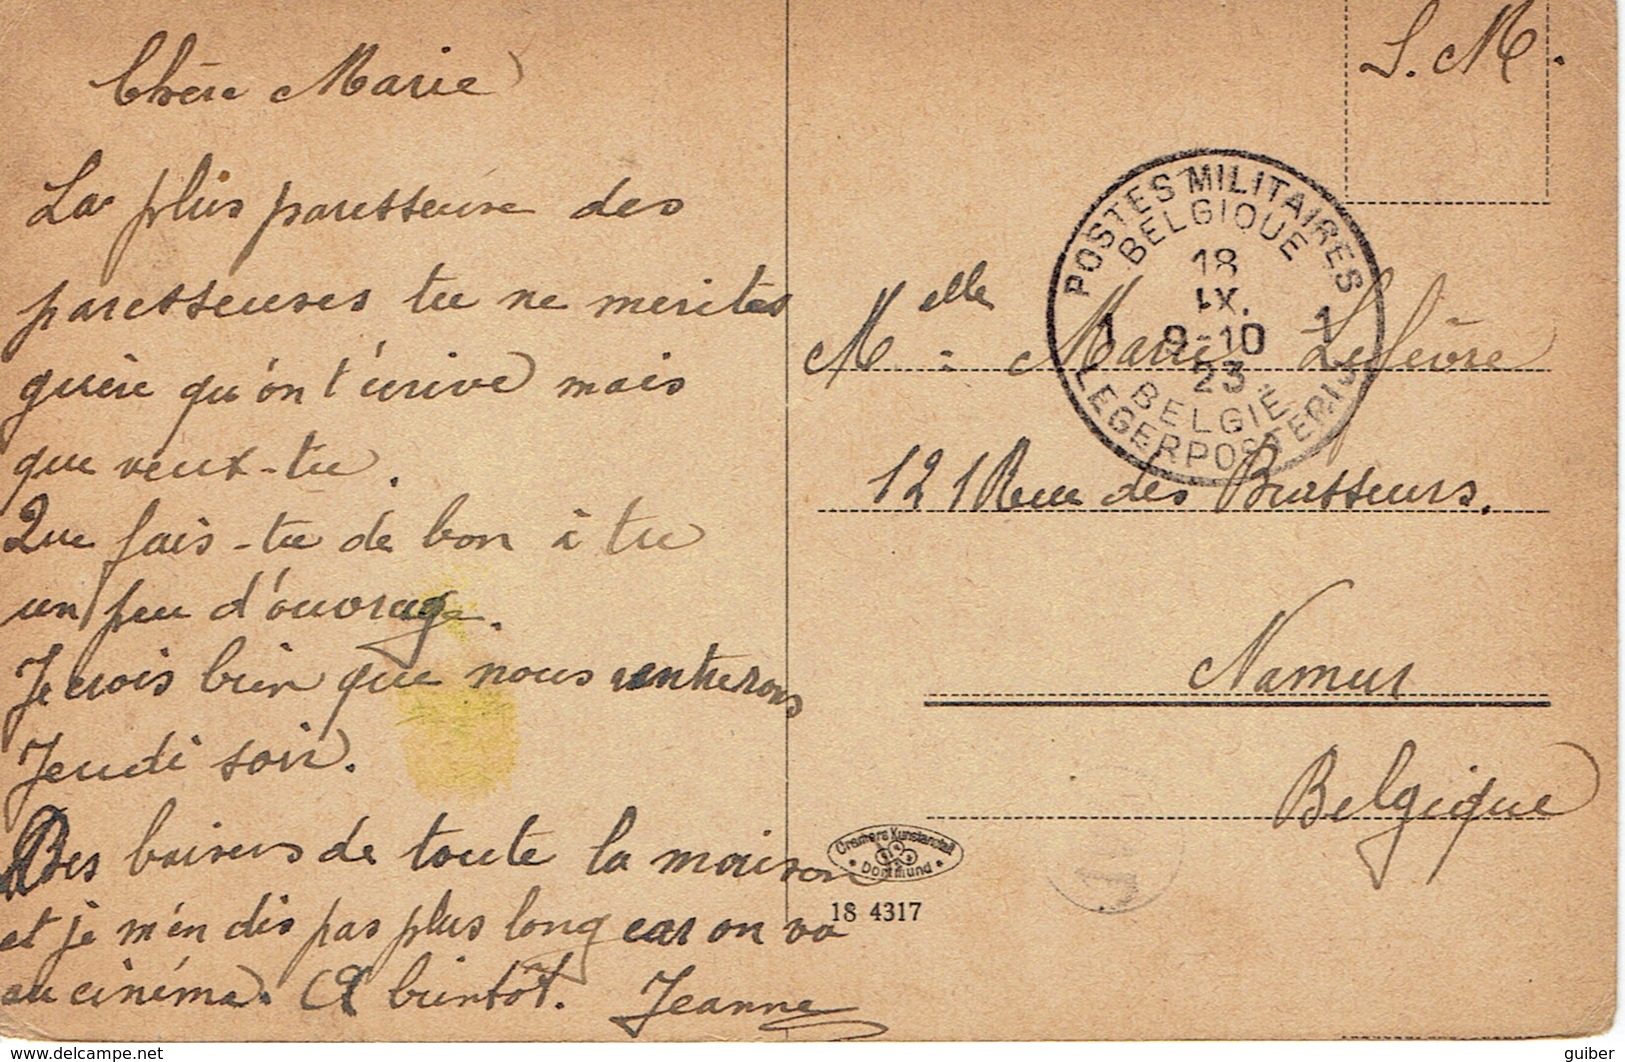 Chère Marie
La plus paresseuse des
paresseuses tu ne merites
guère qu'on t'écrive mais
que veux-tu.
Que fais-tu de bon à tu
un peu d'ouvrage.
Je crois bien que nous rentrerons
Jeudi soir.
Des baisers de toute la maison
et je m'en dis pas plus long car on va
au cinéma. A bientôt. Jeanne
S.M.
POSTES MILITAIRES
BELGIQUE
18
IX.
1 9-10 1
23
BELGIË
LEGERPOSTERIJ
Melle: Marie Lefèvre
121 Rue des Brasseurs.
Namur
Belgique
Cramers Kunstanstalt
Dortmund
18 4317
www.delcampe.net
guiber